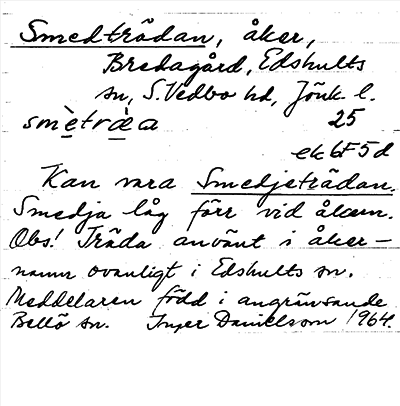 Smedträdan, åker,
Bredagård, Edshults
sn, S. Vedbo hd, Jönk. l.
smètræ̀a 25
ek 6F5d
Kan vara Smedjeträdan.
Smedja låg förr vid åkern.
Obs! Träda använt i åker-
namn ovanligt i Edshults sn.
Meddelaren född i angränsande
Bellö sn. Inger Danielsson 1964.